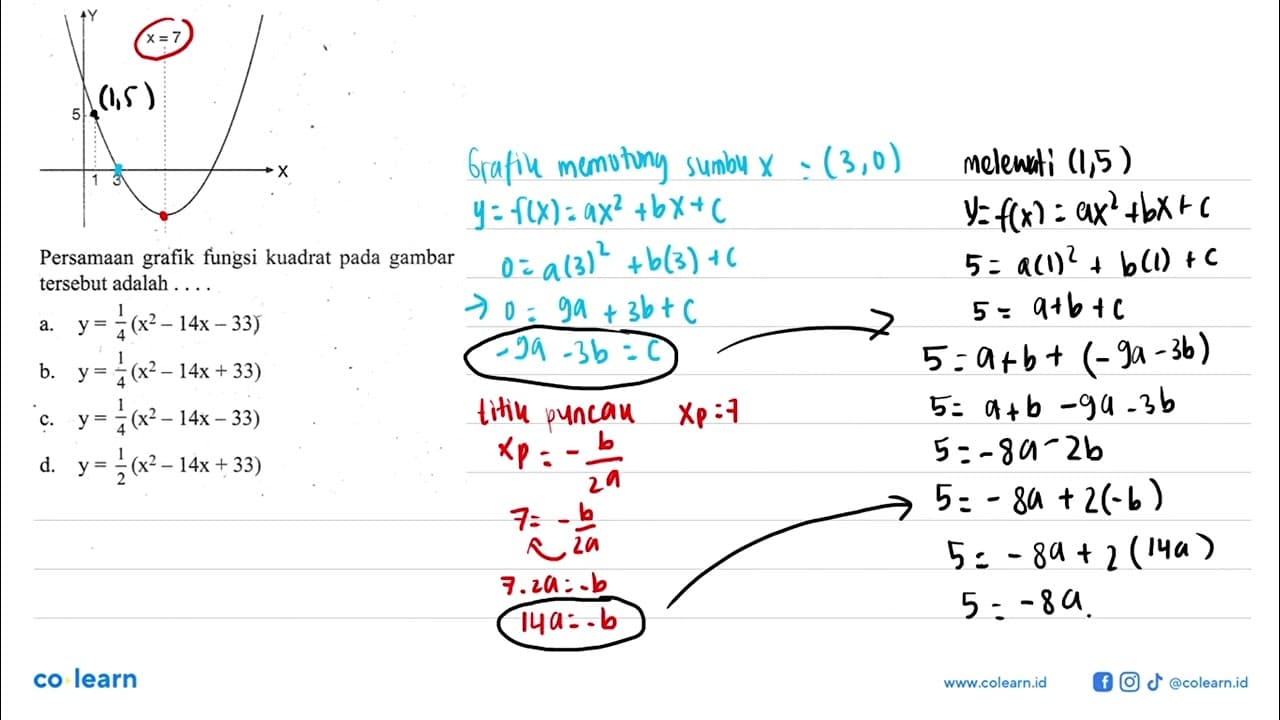 Y
x = 7
(1,5)
5
1 3
X
Persamaan grafik fungsi kuadrat pada gambar
tersebut adalah . . . .
a. y = 1/4 (x² – 14x – 33)
b. y = 1/4 (x² – 14x + 33)
c. y = 1/4 (x² – 14x – 33)
d. y = 1/2 (x² – 14x + 33)
Grafik memotong sumbu x = (3,0)
y = f(x) = ax² + bx + c
0 = a(3)² + b(3) + c
→ 0 = 9a + 3b + c
-9a - 3b = c
titik puncak xp = 7
xp = - b/2a
7 = - b/2a
7.2a = -b
14a = -b
melewati (1,5)
y = f(x) = ax² + bx + c
5 = a(1)² + b(1) + c
5 = a + b + c
5 = a + b + (-9a - 3b)
5 = a + b - 9a - 3b
5 = -8a - 2b
5 = -8a + 2(-b)
5 = -8a + 2(14a)
5 = -8a.
co learn
www.colearn.id
@colearn.id